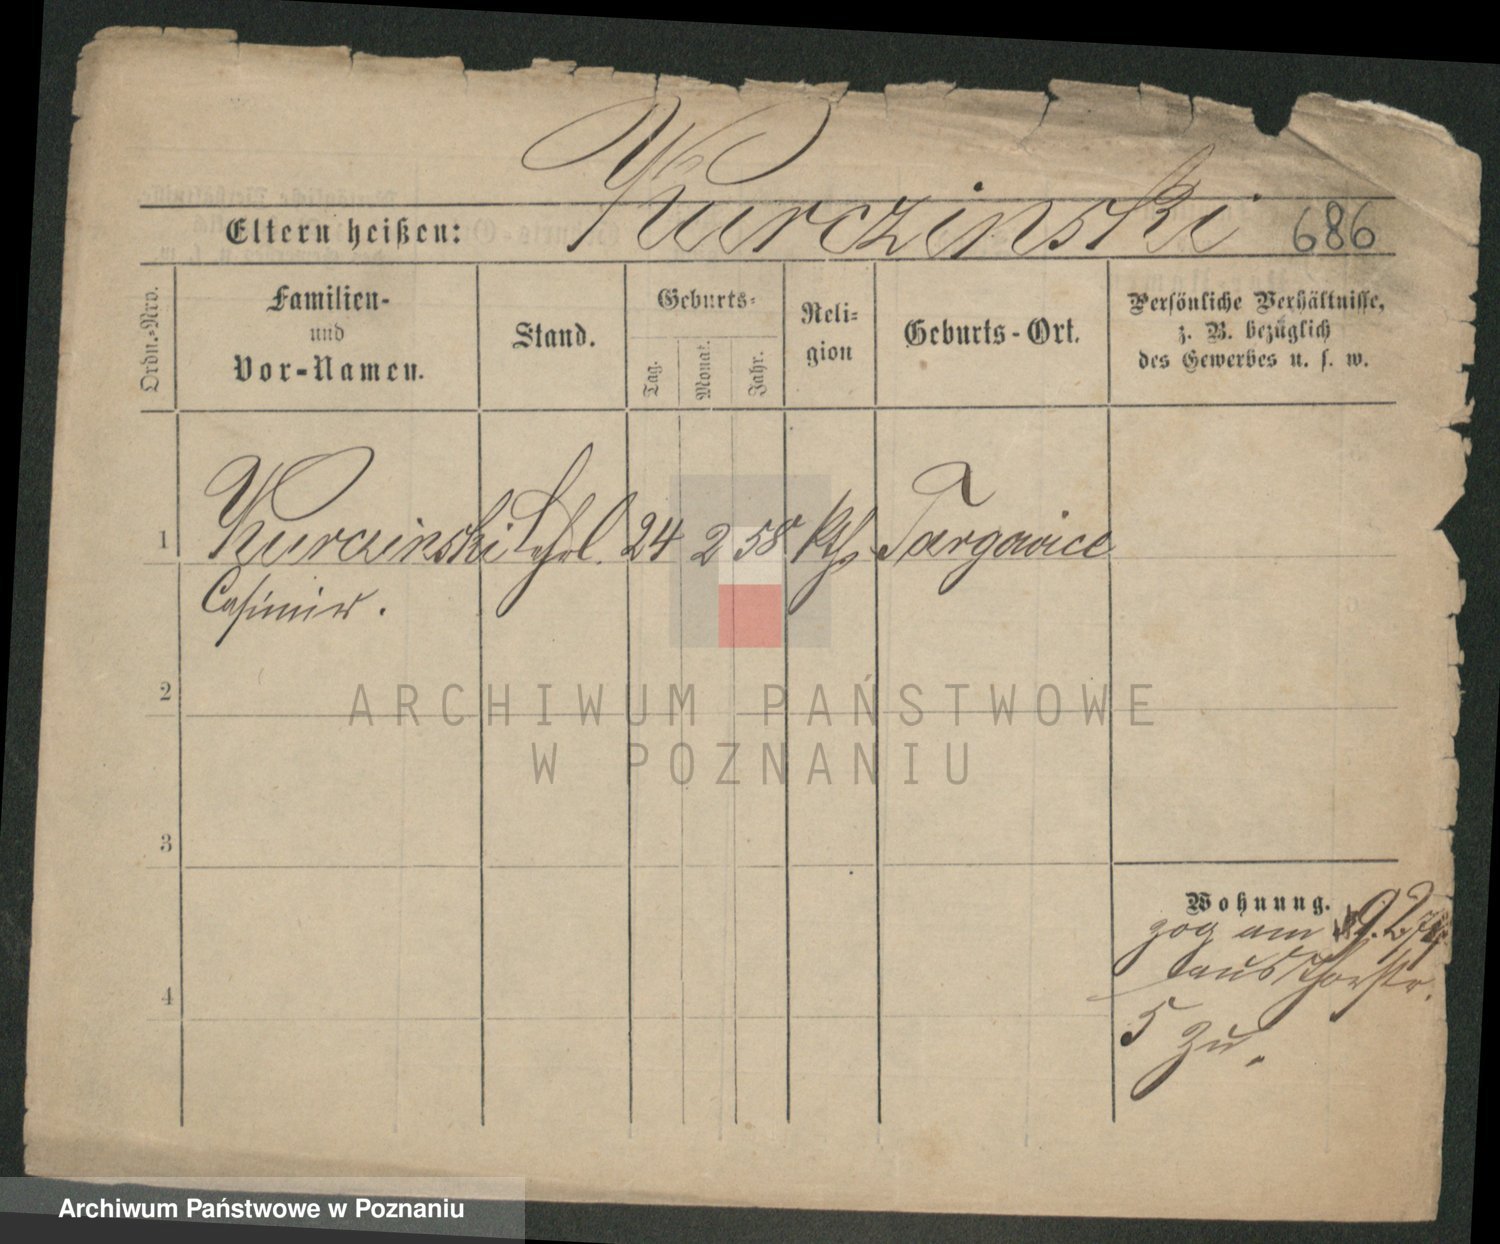 Kurczinski
Eltern heißen: 686
Ordn.-Nro.
Familien-
und
Vor-Namen.
Stand.
Geburts-
Tag.
Monat.
Jahr.
Reli-
gion
Geburts-Ort.
Persönliche Verhältnisse,
z. B. bezüglich
des Gewerbes u. s. w.
1 Kurczinski Lehrl. 24 2 58 kth. Targowice
Casimir.
2
ARCHIWUM PAŃSTWOWE
W POZNANIU
3
Wohnung.
zog am 9.2.
aus Thorstr.
4
5 zu.
Archiwum Państwowe w Poznaniu